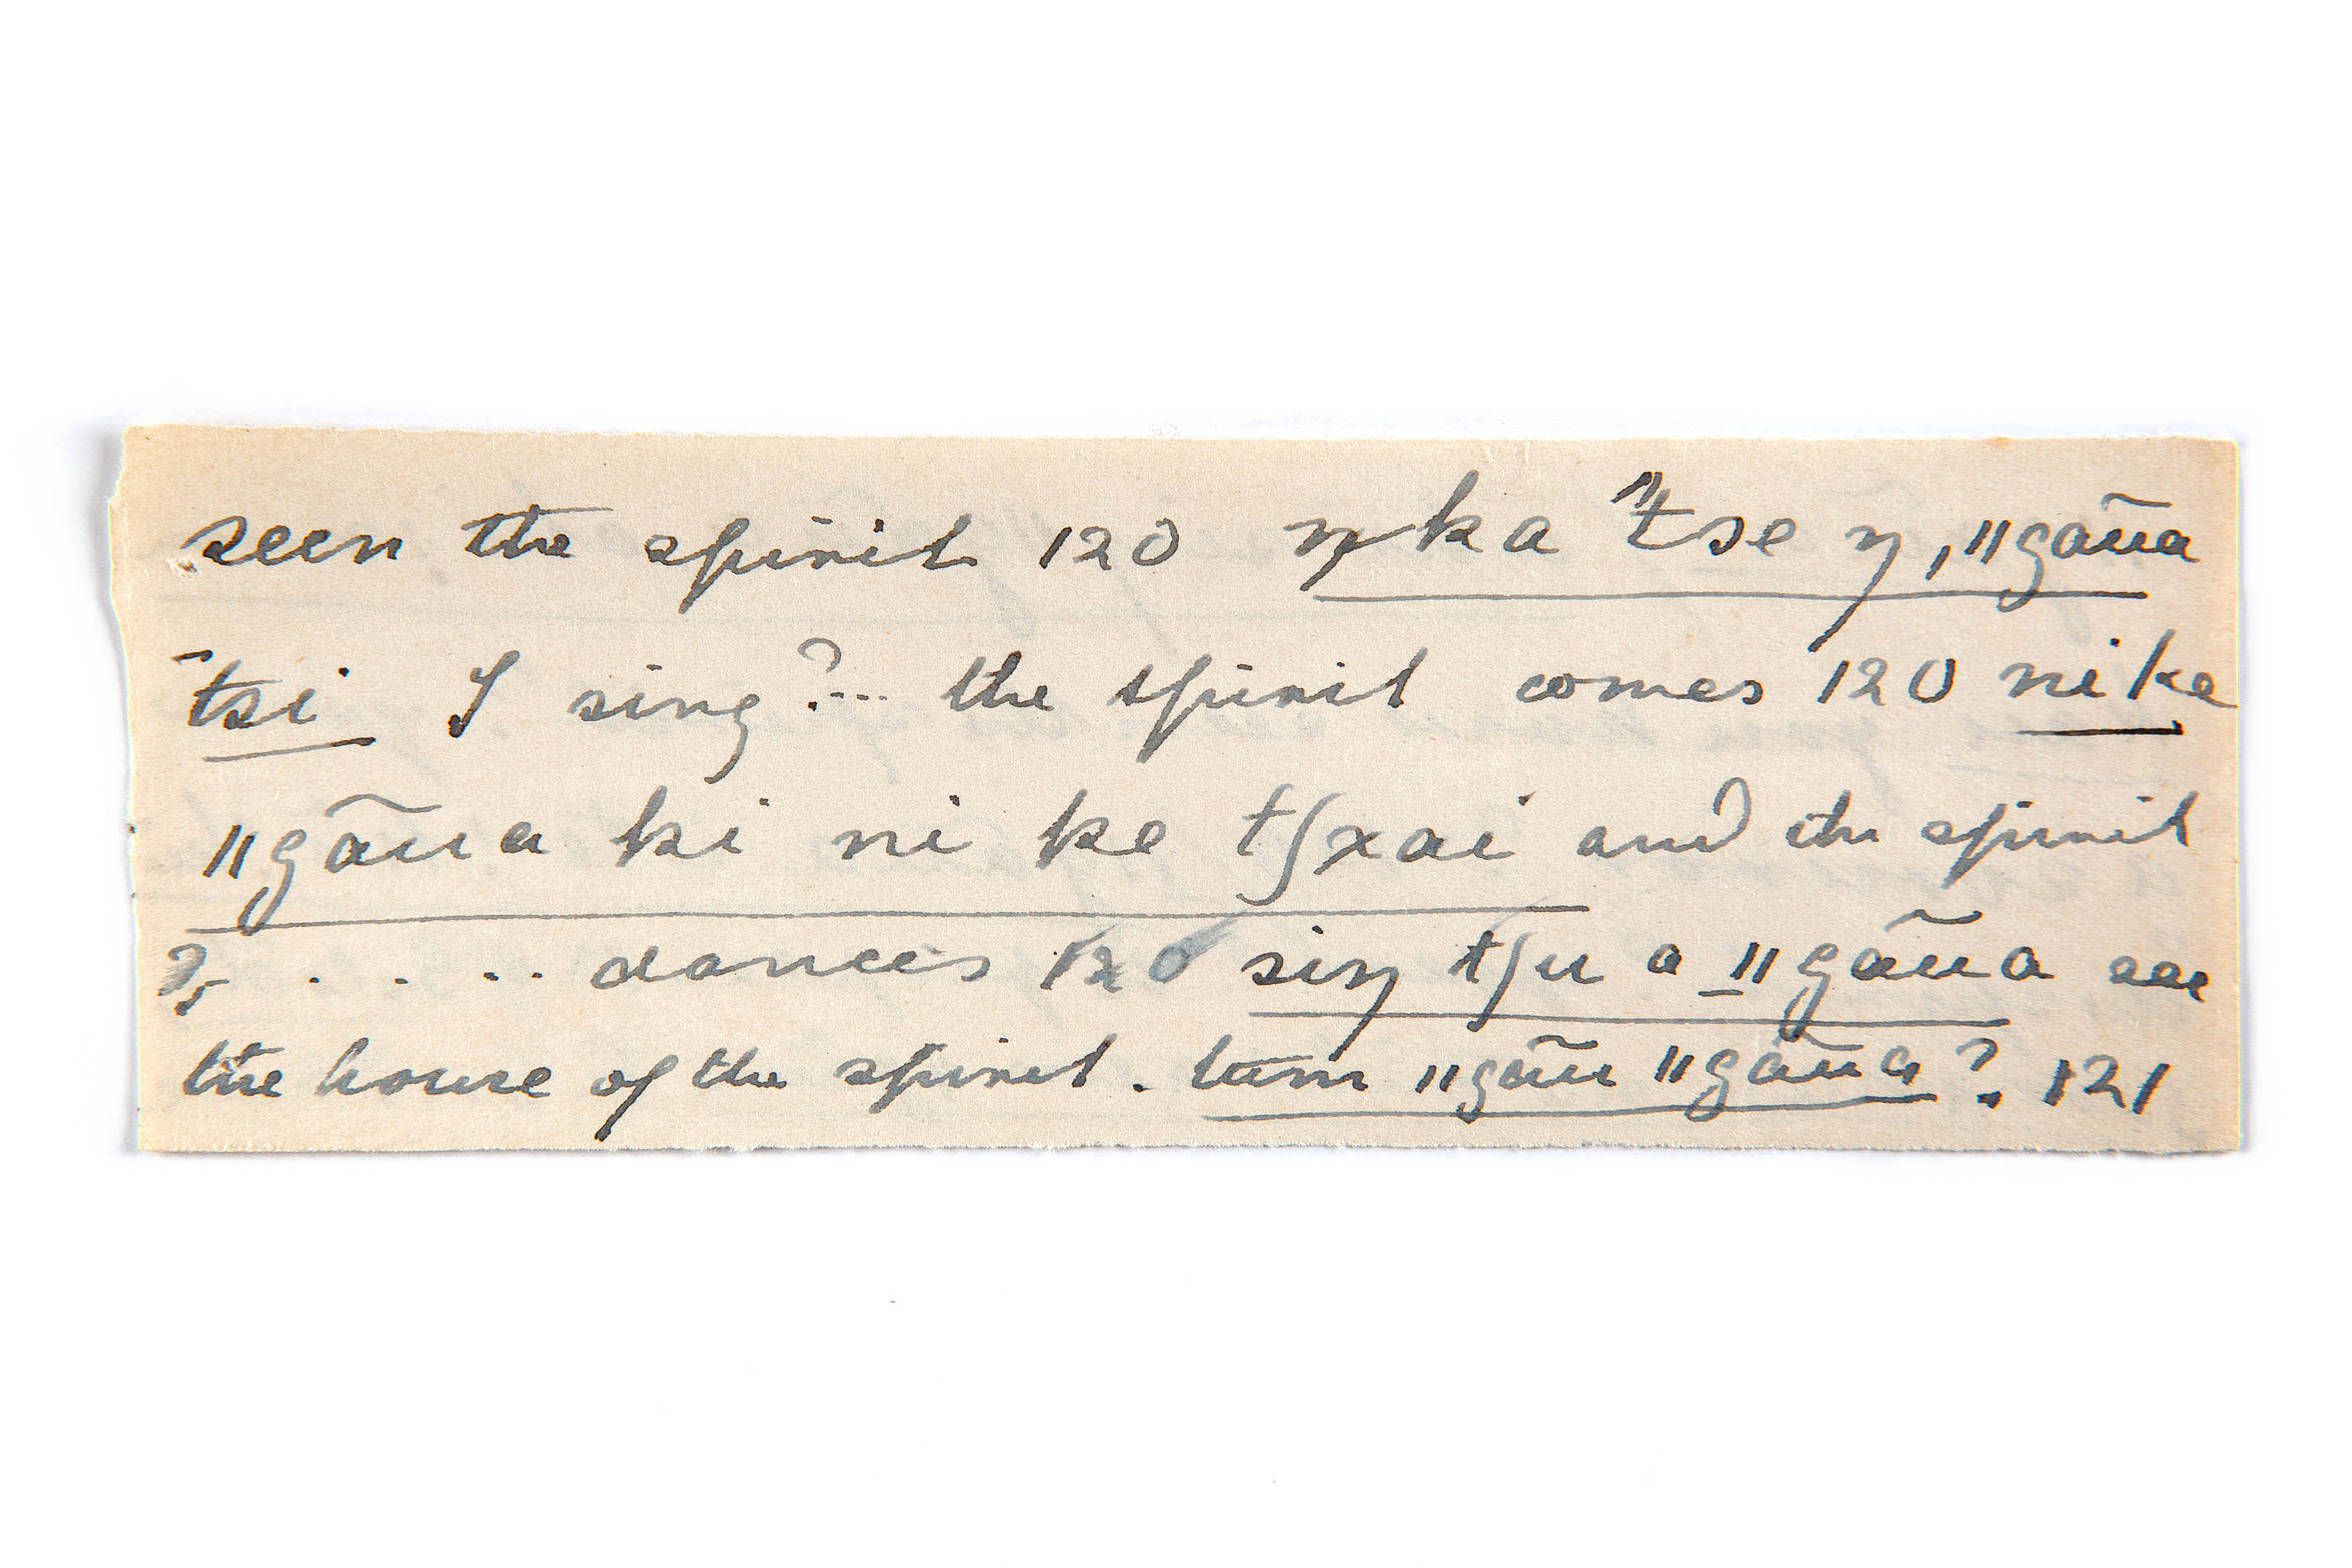 seen the spirit 120 ŋka "tse ŋ, ǁgãũa
tsi I sing?... the spirit comes 120 ni ke
ǁgãũa ki ni ke tʃxai and the spirit
? . . . . . dances 120 siŋ tʃu a ǁgãũa see
the house of the spirit. tum ǁgãũ ǁgãũa? 121